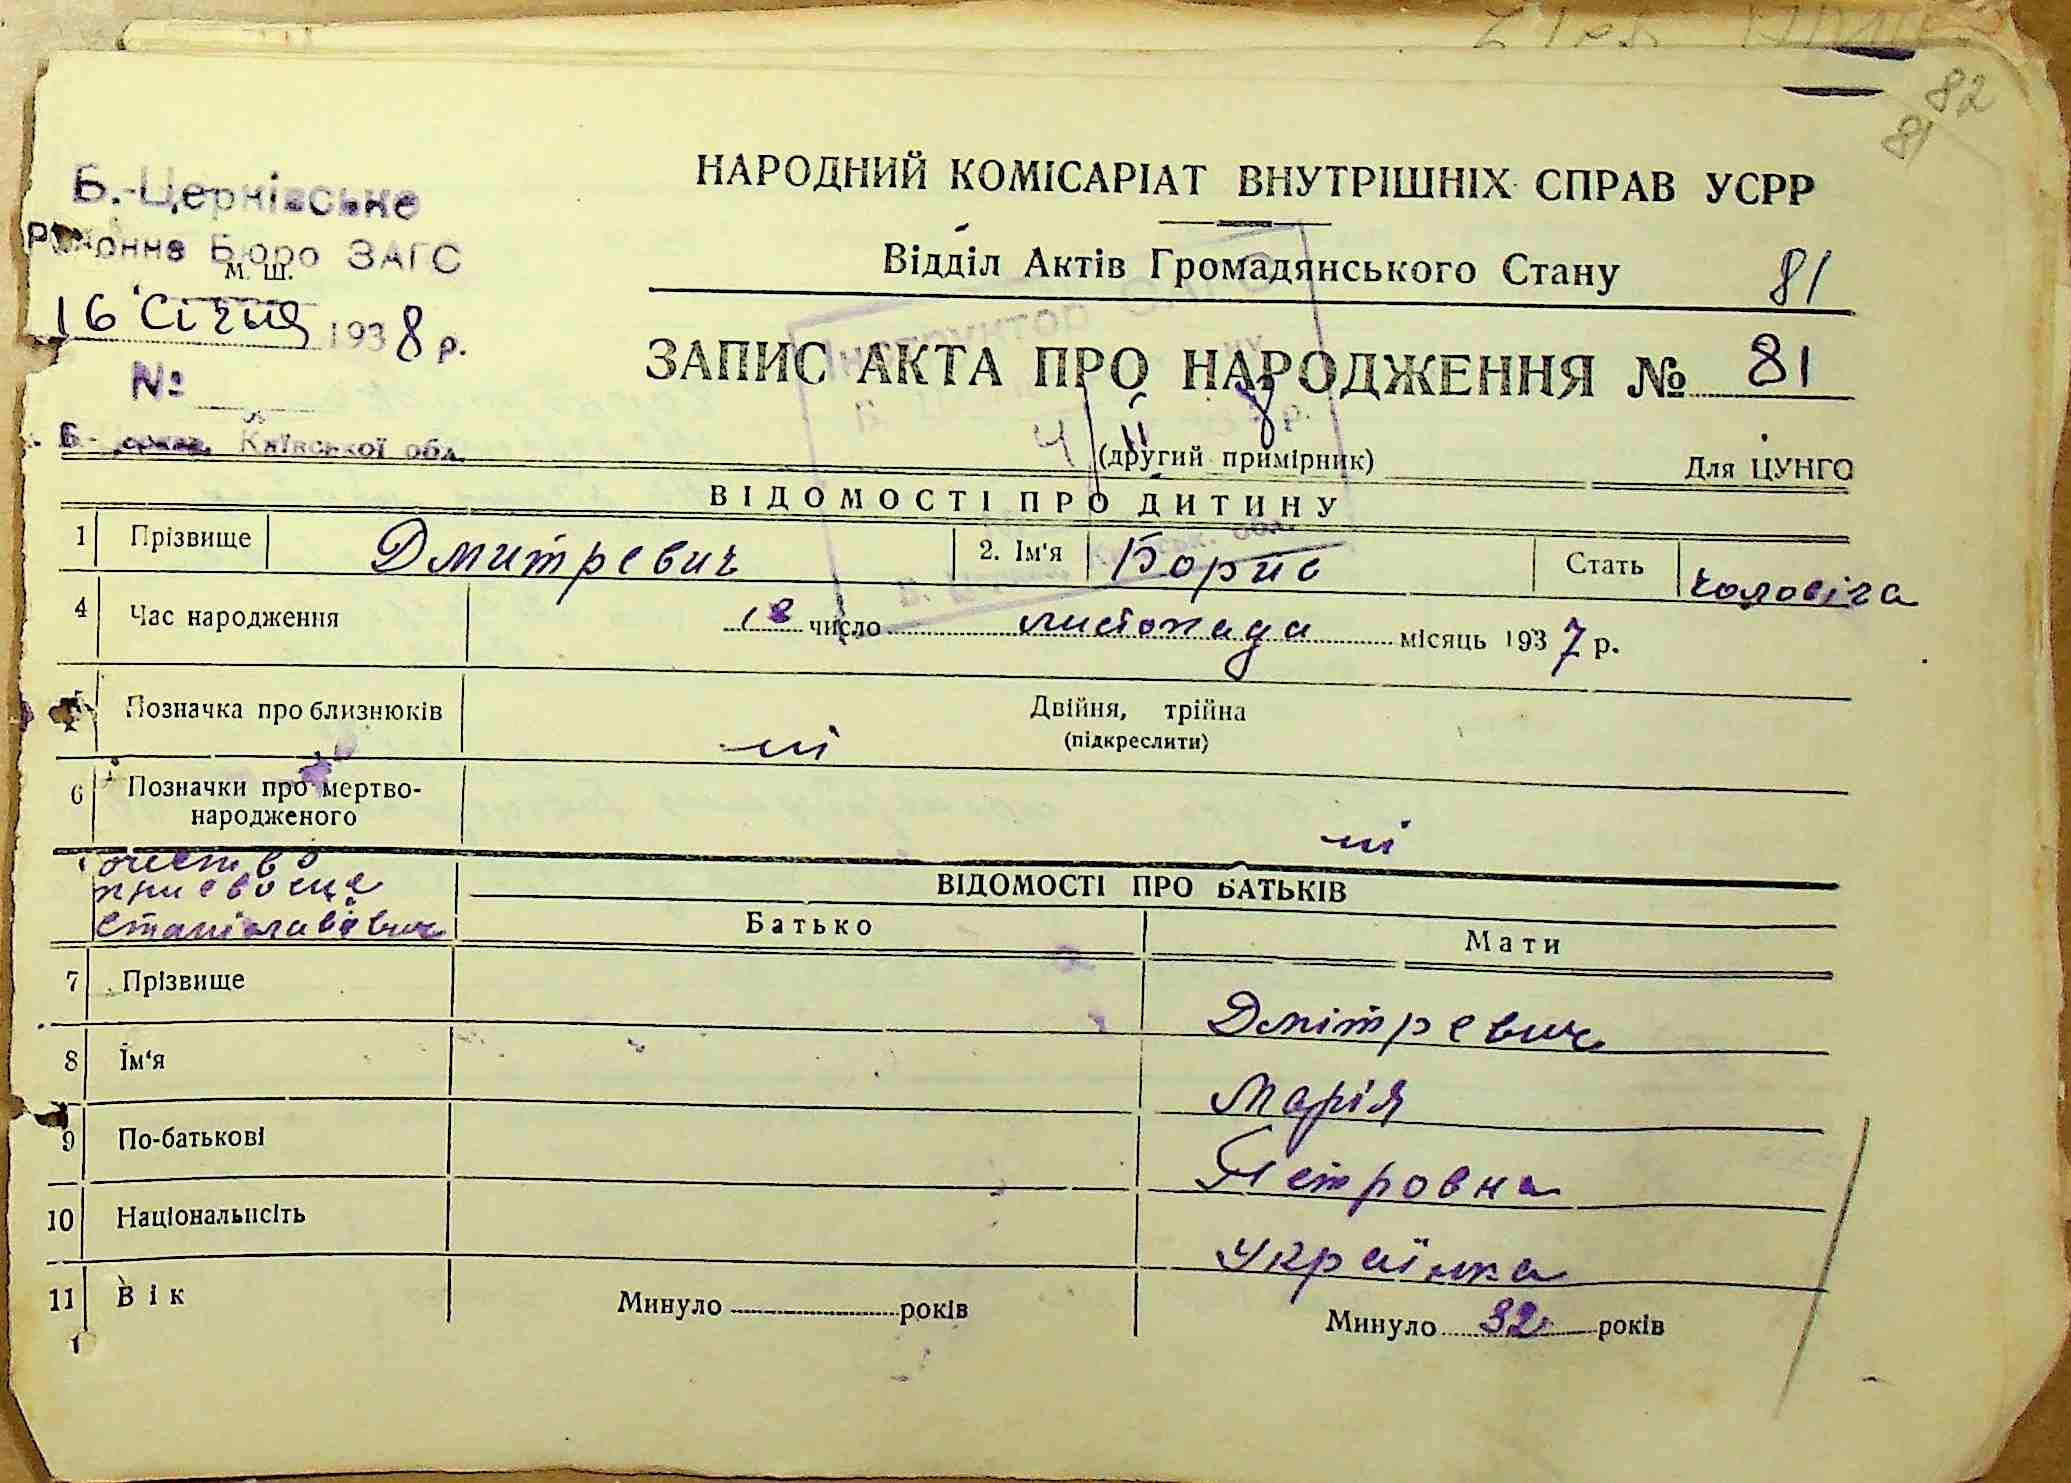 82
81
Б.-Церківське
Районне Бюро ЗАГС
м. ш.
16 Січня 1938 р.
№
Київської обл.
НАРОДНИЙ КОМІСАРІАТ ВНУТРІШНІХ СПРАВ УСРР
Відділ Актів Громадянського Стану 81
ЗАПИС АКТА ПРО НАРОДЖЕННЯ № 81
(другий примірник) Для ЦУНГО
Інструктор
ВІДОМОСТІ ПРО ДИТИНУ
1 Прізвище Дмитревич 2. Ім'я Борис Стать чоловіча
4 Час народження 18 число листопада місяць 1937 р.
Позначка про близнюків ні Двійня, трійна
(підкреслити)
6 Позначки про мертво-
народженого ні
очество
присвоєне
Станіславович
ВІДОМОСТІ ПРО БАТЬКІВ
Батько Мати
7 Прізвище Дмітревич
8 Їм'я Марія
9 По-батькові Петровна
10 Національність Українка
11 Вік Минуло років Минуло 32 років